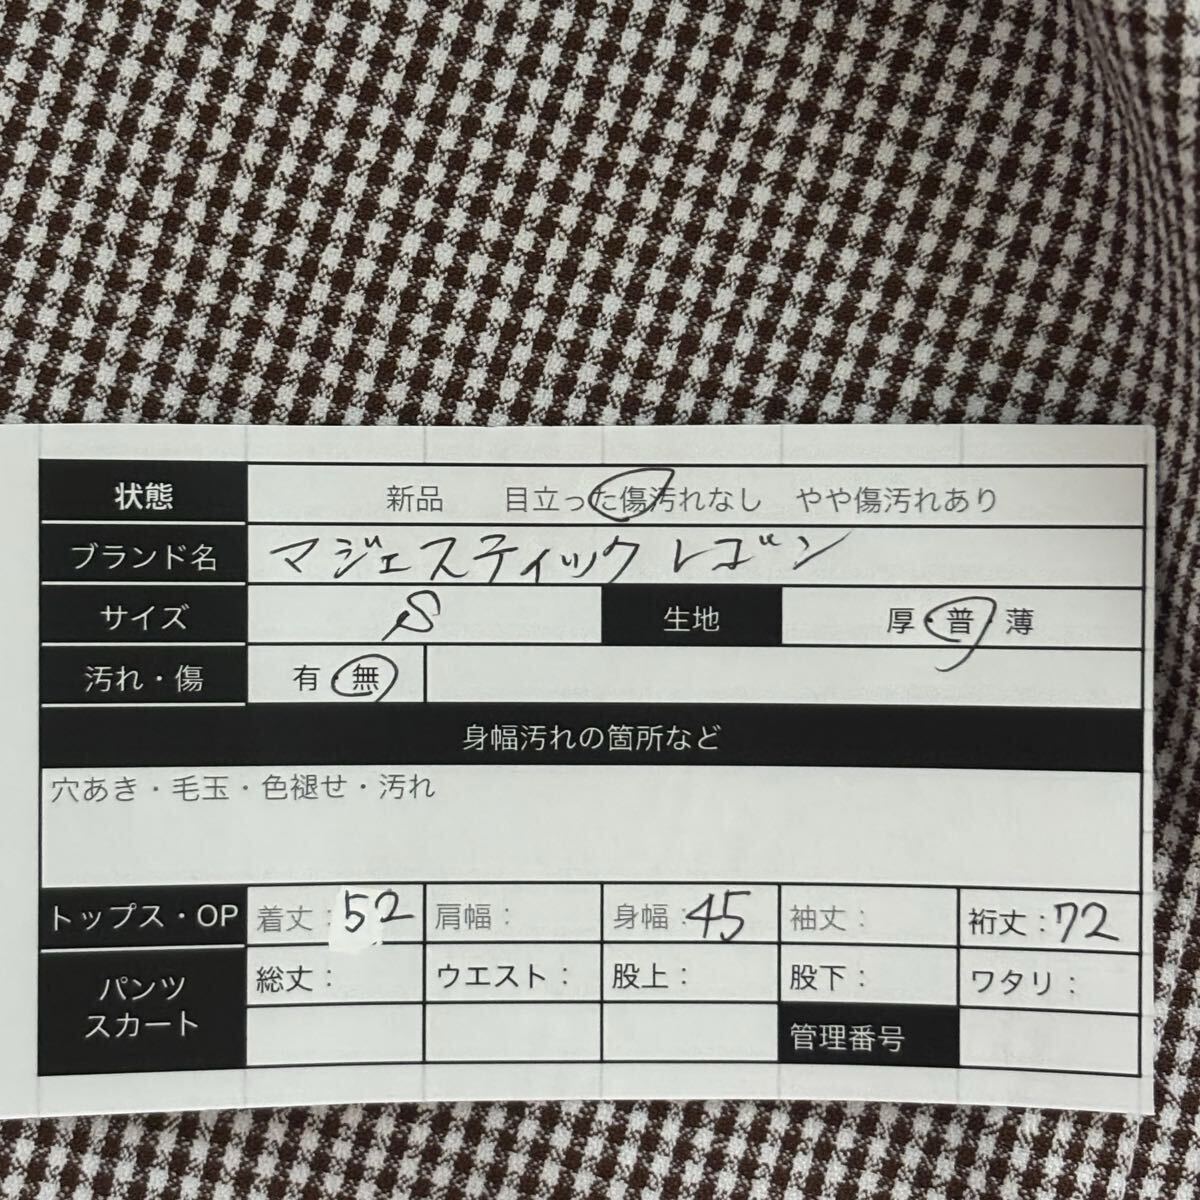 状態 新品 目立った傷汚れなし やや傷汚れあり
ブランド名 マジェスティックレゴン
サイズ S 生地 厚・普・薄
汚れ・傷 有 無
身幅汚れの箇所など
穴あき・毛玉・色褪せ・汚れ
トップス・OP 着丈:52 肩幅: 身幅:45 袖丈: 裄丈:72
パンツ スカート 総丈: ウエスト: 股上: 股下: ワタリ:
管理番号